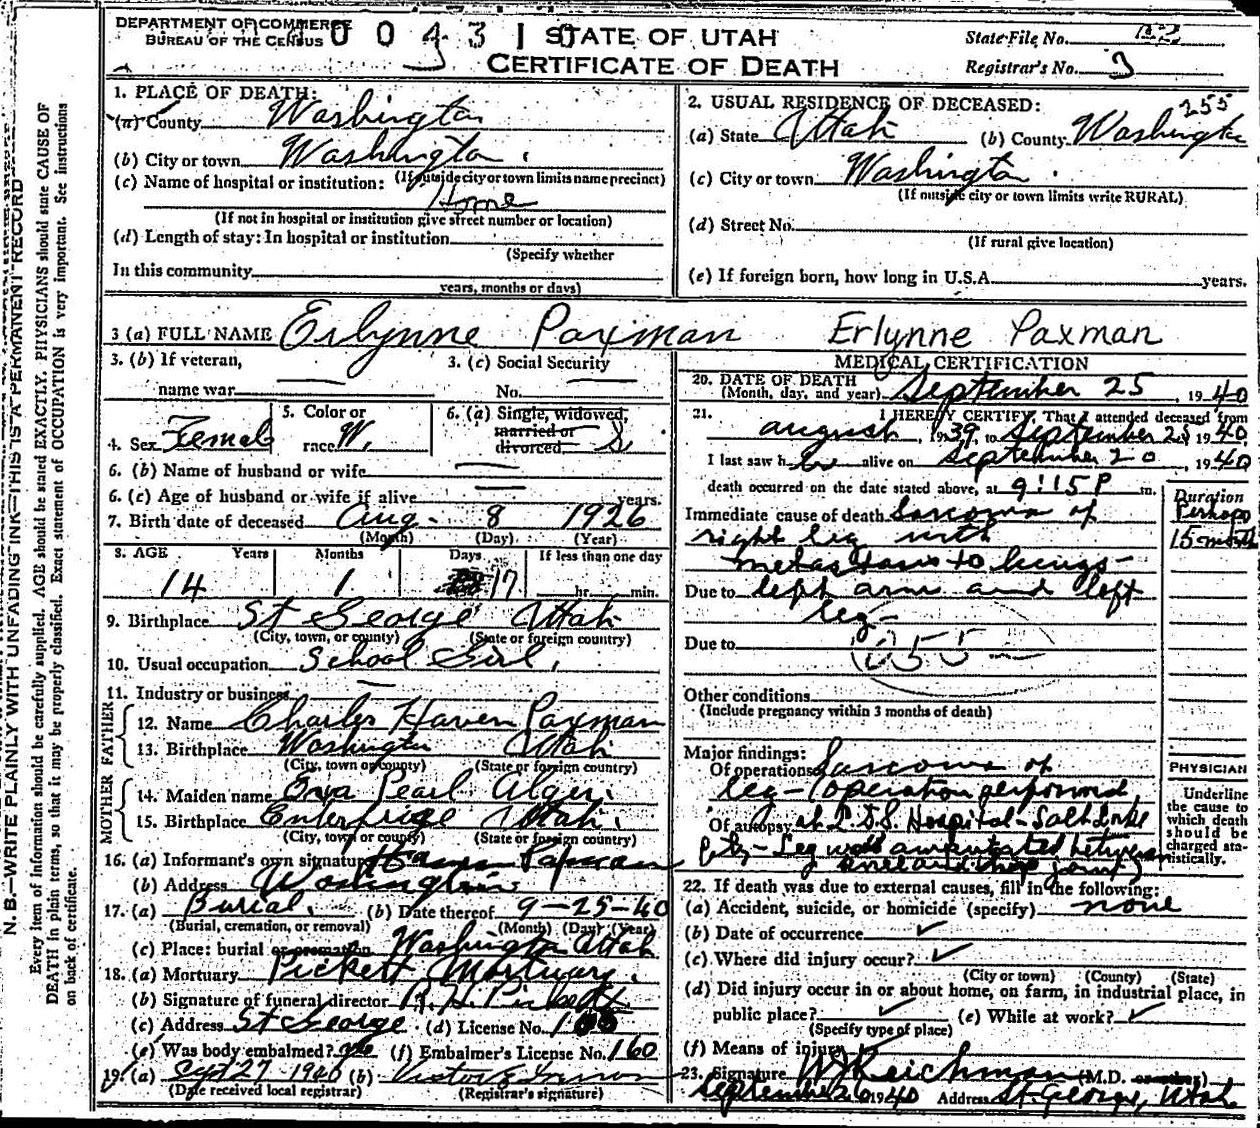 DEPARTMENT OF COMMERCE
BUREAU OF THE CENSUS
STATE OF UTAH
CERTIFICATE OF DEATH
State File No.
Registrar's No. 3
1. PLACE OF DEATH:
(a) County Washington
(b) City or town Washington
(If outside city or town limits name precinct)
(c) Name of hospital or institution:
Home
(If not in hospital or institution give street number or location)
(d) Length of stay: In hospital or institution
(Specify whether
In this community
years, months or days)
2. USUAL RESIDENCE OF DECEASED: 255
(a) State Utah (b) County Washington
(c) City or town Washington
(If outside city or town limits write RURAL)
(d) Street No.
(If rural give location)
(e) If foreign born, how long in U.S.A. years.
3 (a) FULL NAME Erlynne Paxman Erlynne Paxman
3. (b) If veteran,
name war
3. (c) Social Security
No.
4. Sex Female
5. Color or
race W.
6. (a) Single, widowed,
married or
divorced S
6. (b) Name of husband or wife
6. (c) Age of husband or wife if alive years.
7. Birth date of deceased Aug. 8 1926
(Month) (Day) (Year)
8. AGE Years Months Days If less than one day
14 1 17 hr. min.
9. Birthplace St George Utah
(City, town, or county) (State or foreign country)
10. Usual occupation School Girl.
11. Industry or business
FATHER
12. Name Charles Haven Paxman
13. Birthplace Washington Utah
(City, town or county) (State or foreign country)
MOTHER
14. Maiden name Pearl Alger
15. Birthplace Enterprise Utah.
(City, town or county) (State or foreign country)
16. (a) Informant's own signature Haven Paxman
(b) Address Washington
17. (a) Burial. (b) Date thereof 9-25-40
(Burial, cremation, or removal) (Month) (Day) (Year)
(c) Place: burial or cremation Washington Utah
18. (a) Mortuary Pickett Mortuary.
(b) Signature of funeral director
(c) Address St George (d) License No.
(e) Was body embalmed? (f) Embalmer's License No. 160
19. (a) Sept 27 1940 (b)
(Date received local registrar) (Registrar's signature)
MEDICAL CERTIFICATION
20. DATE OF DEATH
(Month, day, and year) September 25, 1940
21. I HEREBY CERTIFY, That I attended deceased from
August, 1939, to September 25 1940
I last saw her alive on September 20, 1940
death occurred on the date stated above, at 9:15 P m.
Duration
Perhaps
15 months
Immediate cause of death Sarcoma of
right leg with
metastasis to lungs-
Due to left arm and left
leg-
Due to 055-
Other conditions
(Include pregnancy within 3 months of death)
Major findings:
Of operations Sarcoma of
leg- (operation performed
Of autopsy at L.D.S. Hospital- Salt Lake
City- Leg was amputated between
knee and hip joint)
PHYSICIAN
Underline
the cause to
which death
should be
charged sta-
tistically.
22. If death was due to external causes, fill in the following:
(a) Accident, suicide, or homicide (specify) none
(b) Date of occurrence ✓
(c) Where did injury occur? ✓
(City or town) (County) (State)
(d) Did injury occur in or about home, on farm, in industrial place, in
public place? ✓ (e) While at work? ✓
(Specify type of place)
(f) Means of injury
23. Signature Reichman (M.D.
September 26 1940 Address St. George, Utah
N. B.—WRITE PLAINLY WITH UNFADING INK—THIS IS A PERMANENT RECORD
Every item of information should be carefully supplied. AGE should be stated EXACTLY. PHYSICIANS should state CAUSE OF
DEATH in plain terms, so that it may be properly classified. Exact statement of OCCUPATION is very important. See instructions
on back of certificate.